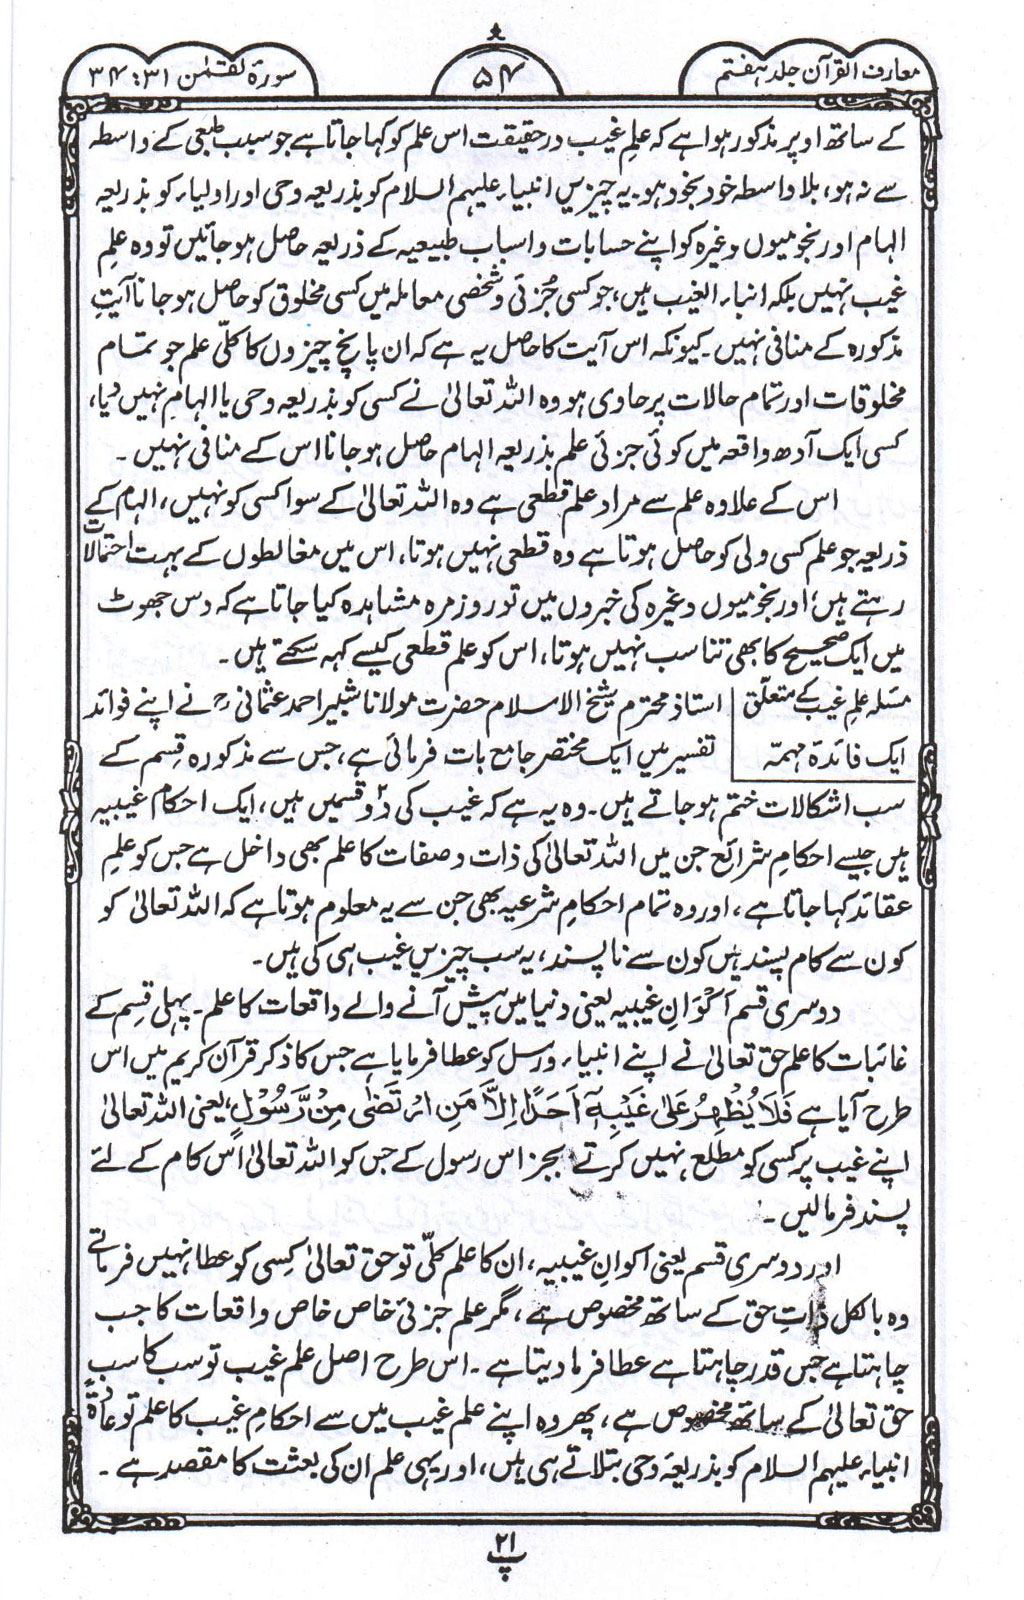 معارف القرآن جلد ہفتم
۵۴
سورۂ لقمٰن ۳۱ : ۳۴
کے ساتھ اوپر مذکور ہوا ہے کہ علمِ غیب درحقیقت اس علم کو کہا جاتا ہے جو سبب طبعی کے واسطہ
سے نہ ہو، بلا واسطہ خود بخود ہو۔ یہ چیزیں انبیاء علیہم السلام کو بذریعہ وحی اور اولیاء کو بذریعہ
الہام اور نجومیوں وغیرہ کو اپنے حسابات و اسباب طبیعیہ کے ذریعہ حاصل ہو جائیں تو وہ علمِ
غیب نہیں بلکہ انباء الغیب ہیں، جو کسی جُزئی و شخصی معاملہ میں کسی مخلوق کو حاصل ہو جانا آیتِ
مذکورہ کے منافی نہیں۔ کیونکہ اس آیت کا حاصل یہ ہے کہ ان پانچ چیزوں کا کلّی علم جو تمام
مخلوقات اور تمام حالات پر حاوی ہو وہ اللہ تعالیٰ نے کسی کو بذریعہ وحی یا الہام نہیں دیا،
کسی ایک آدھ واقعہ میں کوئی جزئی علم بذریعہ الہام حاصل ہو جانا اس کے منافی نہیں۔
اس کے علاوہ علم سے مراد علم قطعی ہے وہ اللہ تعالیٰ کے سوا کسی کو نہیں، الہام کے
ذریعہ جو علم کسی ولی کو حاصل ہوتا ہے وہ قطعی نہیں ہوتا، اس میں مغالطوں کے بہت احتمالات
رہتے ہیں، اور نجومیوں وغیرہ کی خبروں میں تو روز مرہ مشاہدہ کیا جاتا ہے کہ دس جھوٹ
میں ایک صحیح کا بھی تناسب نہیں ہوتا، اس کو علم قطعی کیسے کہہ سکتے ہیں۔
مسئلہ علم غیب کے متعلّق
ایک فائدۃ مہمّہ
استاذ محترم شیخ الاسلام حضرت مولانا شبیر احمد عثمانی رح نے اپنے فوائد
تفسیر میں ایک مختصر جامع بات فرمائی ہے، جس سے مذکورہ قسم کے
سب اشکالات ختم ہو جاتے ہیں۔ وہ یہ ہے کہ غیب کی دو قسمیں ہیں، ایک احکام غیبیہ
ہیں جیسے احکامِ شرائع جن میں اللہ تعالیٰ کی ذات و صفات کا علم بھی داخل ہے جس کو علمِ
عقائد کہا جاتا ہے، اور وہ تمام احکامِ شرعیہ بھی جن سے یہ معلوم ہوتا ہے کہ اللہ تعالیٰ کو
کون سے کام پسند ہیں کون سے ناپسند، یہ سب چیزیں غیب ہی کی ہیں۔
دوسری قسم اَکْوَانِ غیبیہ یعنی دنیا میں پیش آنے والے واقعات کا علم۔ پہلی قسم کے
غائبات کا علم حق تعالیٰ نے اپنے انبیاء و رسل کو عطا فرمایا ہے جس کا ذکر قرآن کریم میں اس
طرح آیا ہے فَلَا يُظْهِرُ عَلٰى غَيْبِهٖٓ اَحَدًا اِلَّا مَنِ ارْتَضٰى مِنْ رَّسُوْلٍ، یعنی اللہ تعالیٰ
اپنے غیب پر کسی کو مطلع نہیں کرتے بجز اس رسول کے جس کو اللہ تعالیٰ اس کام کے لئے
پسند فرمالیں۔
اور دوسری قسم یعنی اکوانِ غیبیہ، ان کا علم کلّی تو حق تعالیٰ کسی کو عطا نہیں فرماتے
وہ بالکل ذاتِ حق کے ساتھ مخصوص ہے، مگر علم جزئی خاص خاص واقعات کا جب
چاہتا ہے جس قدر چاہتا ہے عطا فرما دیتا ہے۔ اس طرح اصل علم غیب تو سب کا سب
حق تعالیٰ کے ساتھ مخصوص ہے، پھر وہ اپنے علم غیب میں سے احکامِ غیب کا علم تو عادۃً
انبیاء علیہم السلام کو بذریعۂ وحی بتلاتے ہی ہیں، اور یہی علم ان کی بعثت کا مقصد ہے۔
۲۱
پ